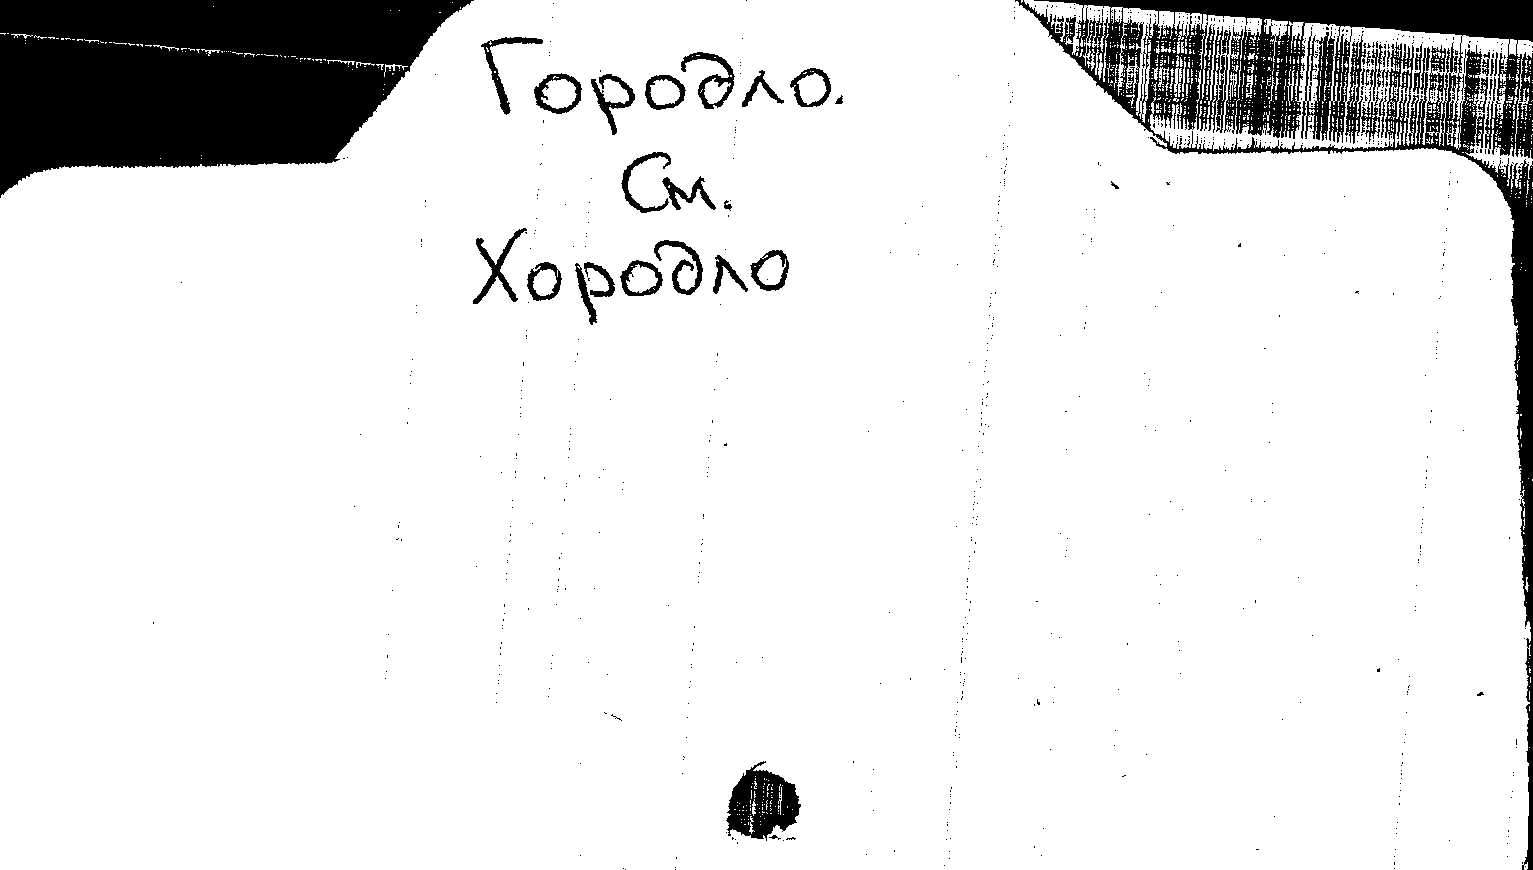 Городло.
См.
Хородло